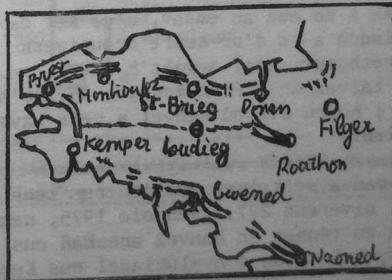 Brest
Montroulez
St-Brieg
Dinan
Filger
Kemper
Loudieg
Roathon
Gwened
Naoned